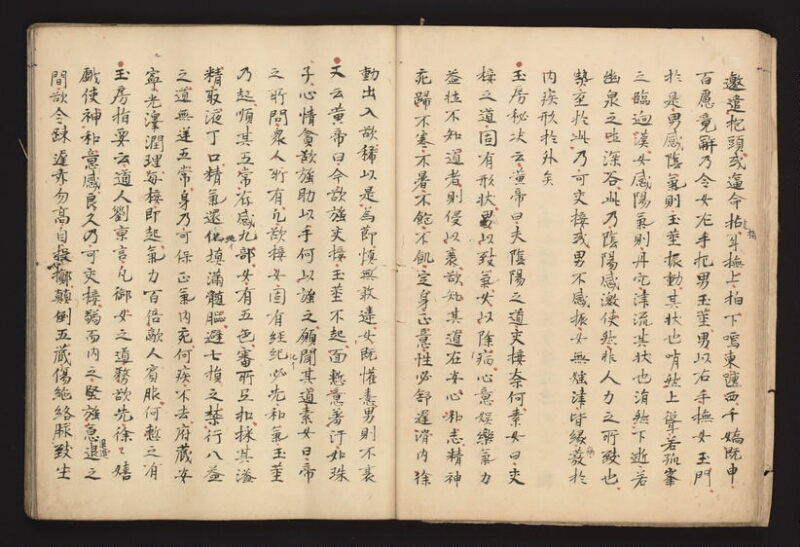 抱頭或逼命撫上拍下嗚東西千嬌既申
百慮竟解乃令女左手把男玉莖男以右手撫女玉門
於是男感陰氣則玉莖振動其狀也峭然上聳若孤峯
之臨迥漢女感陽氣則丹穴津流其狀也涓然下逝若
幽泉之吐深谷此乃陰陽感激使然非人力之所致也
勢至於此乃可交接或男不感振女無婬津皆緣病發於
內疾形於外矣
玉房秘决云黃帝曰夫陰陽之道交接奈何素女曰交
接之道固有形狀男以致氣女以除病心意娛樂氣力
益壯不知道者則侵以衰欲知其道在安心和志精神
充歸不寒不暑不飽不飢定身正意性必舒遲滑內徐
動出入欲稀以是為節慎無敢違女既懽憙男則不衰
又云黃帝曰今欲强交接玉莖不起面慙意羞汗如珠
子心情貪欲强助以手何以强之願聞其道素女曰帝
之所問衆人所有凡欲接女固有經紀必先和氣玉莖
乃起順其五常存感九部女有五色審所足扣採其溢
精取液丁口精氣還化填滿髓腦避七損之禁行八益
之道無逆五常身乃可保正氣內充何疾不去府藏安
寧光澤潤理每接即起氣力百倍敵人賓服何慙之有
玉房指要云道人劉京言凡御女之道務欲先徐〻嬉
戲使神和意感良久乃可交接弱而內之堅强急退進退之
間欲令踈遲亦勿高自投擲顛倒五藏傷絕絡脉致生